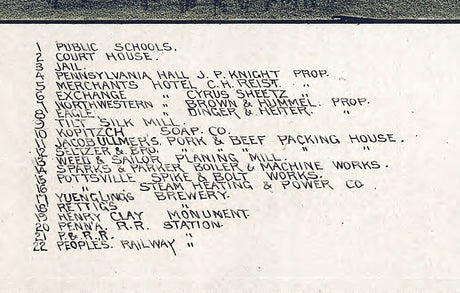 1 PUBLIC SCHOOLS.
2 COURT HOUSE.
3 JAIL.
4 PENNSYLVANIA HALL J. P. KNIGHT PROP.
5 MERCHANTS HOTEL C. H. REIST. "
6 EXCHANGE " CYRUS SHEETZ "
7 NORTHWESTERN " BROWN & HUMMEL. PROP.
8 EAGLE. " DINGER & HEITER. "
9 TILT SILK MILL.
10 KOPITZCH SOAP. CO.
11 JACOB ULLMER'S. PORK & BEEF PACKING HOUSE.
12 SELTZER & BERO. " " " "
13 WEED & SAILOR PLANING MILL.
14 SPARKS & PARKER BOILER & MACHINE WORKS.
15 POTTSVILLE SPIKE & BOLT WORKS.
16 " STEAM HEATING & POWER CO
17 YUENGLINGS BREWERY.
18 RETTIGS "
19 HENRY CLAY MONUMENT.
20 PENN'A R.R. STATION.
21 P. & R. R. "
22 PEOPLES. RAILWAY "